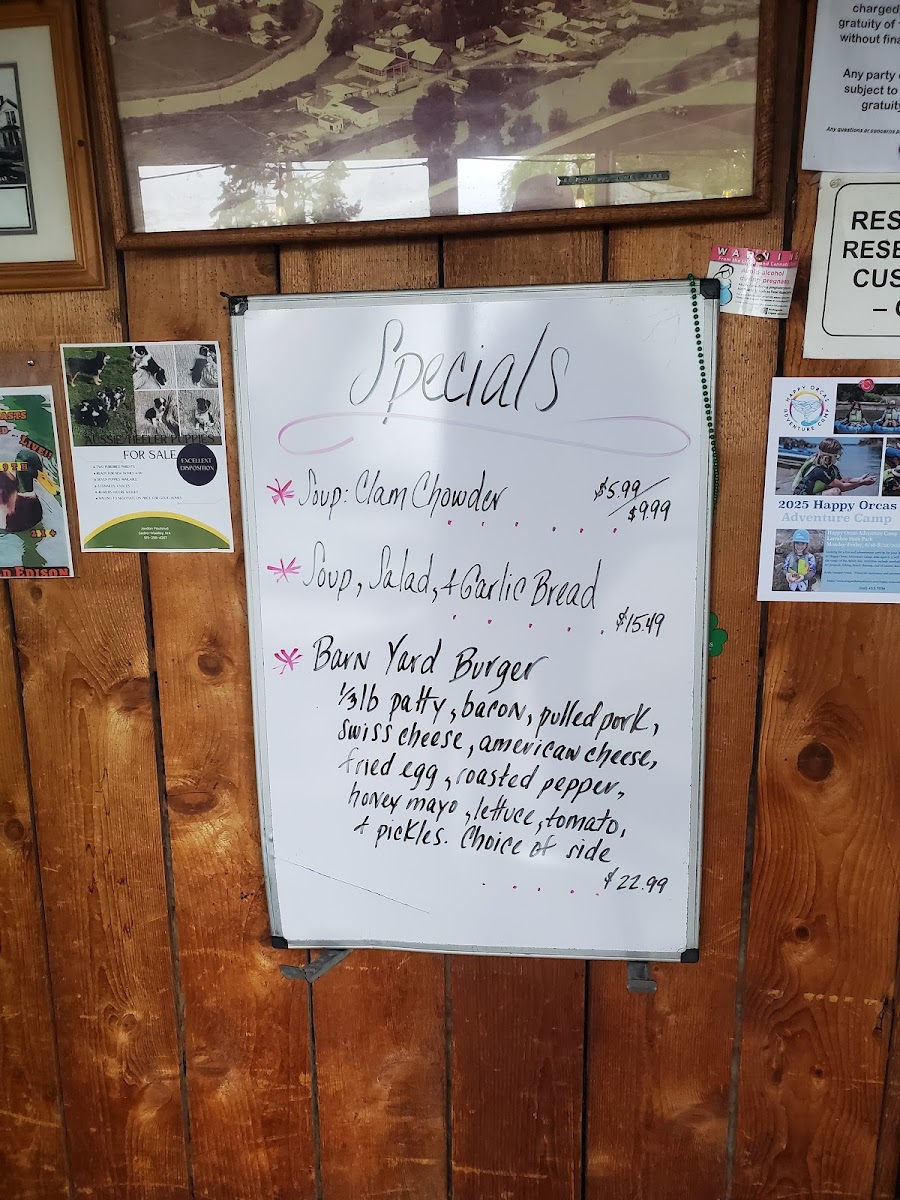 Specials
* Soup: Clam Chowder $5.99/
$9.99
* Soup, Salad, + Garlic Bread
$15.49
* Barn Yard Burger
1/3 lb patty, bacon, pulled pork,
swiss cheese, american cheese,
fried egg, roasted pepper,
honey mayo, lettuce, tomato,
+ pickles. Choice of side
$22.99
charged
gratuity of
without fina
Any party
subject to
gratuity
Any questions or concerns
RES
RESE
CUS
– C
WARNIN
alcohol
pregnan
AUSSIE/HEELER PUPPIES
FOR SALE
EXCELLENT
DISPOSITION
HAPPY ORCAS
ADVENTURE CAMP
2025 Happy Orcas
Adventure Camp
Happy Orcas Adventure Camp
ASTS
LIVE!!
EDISON